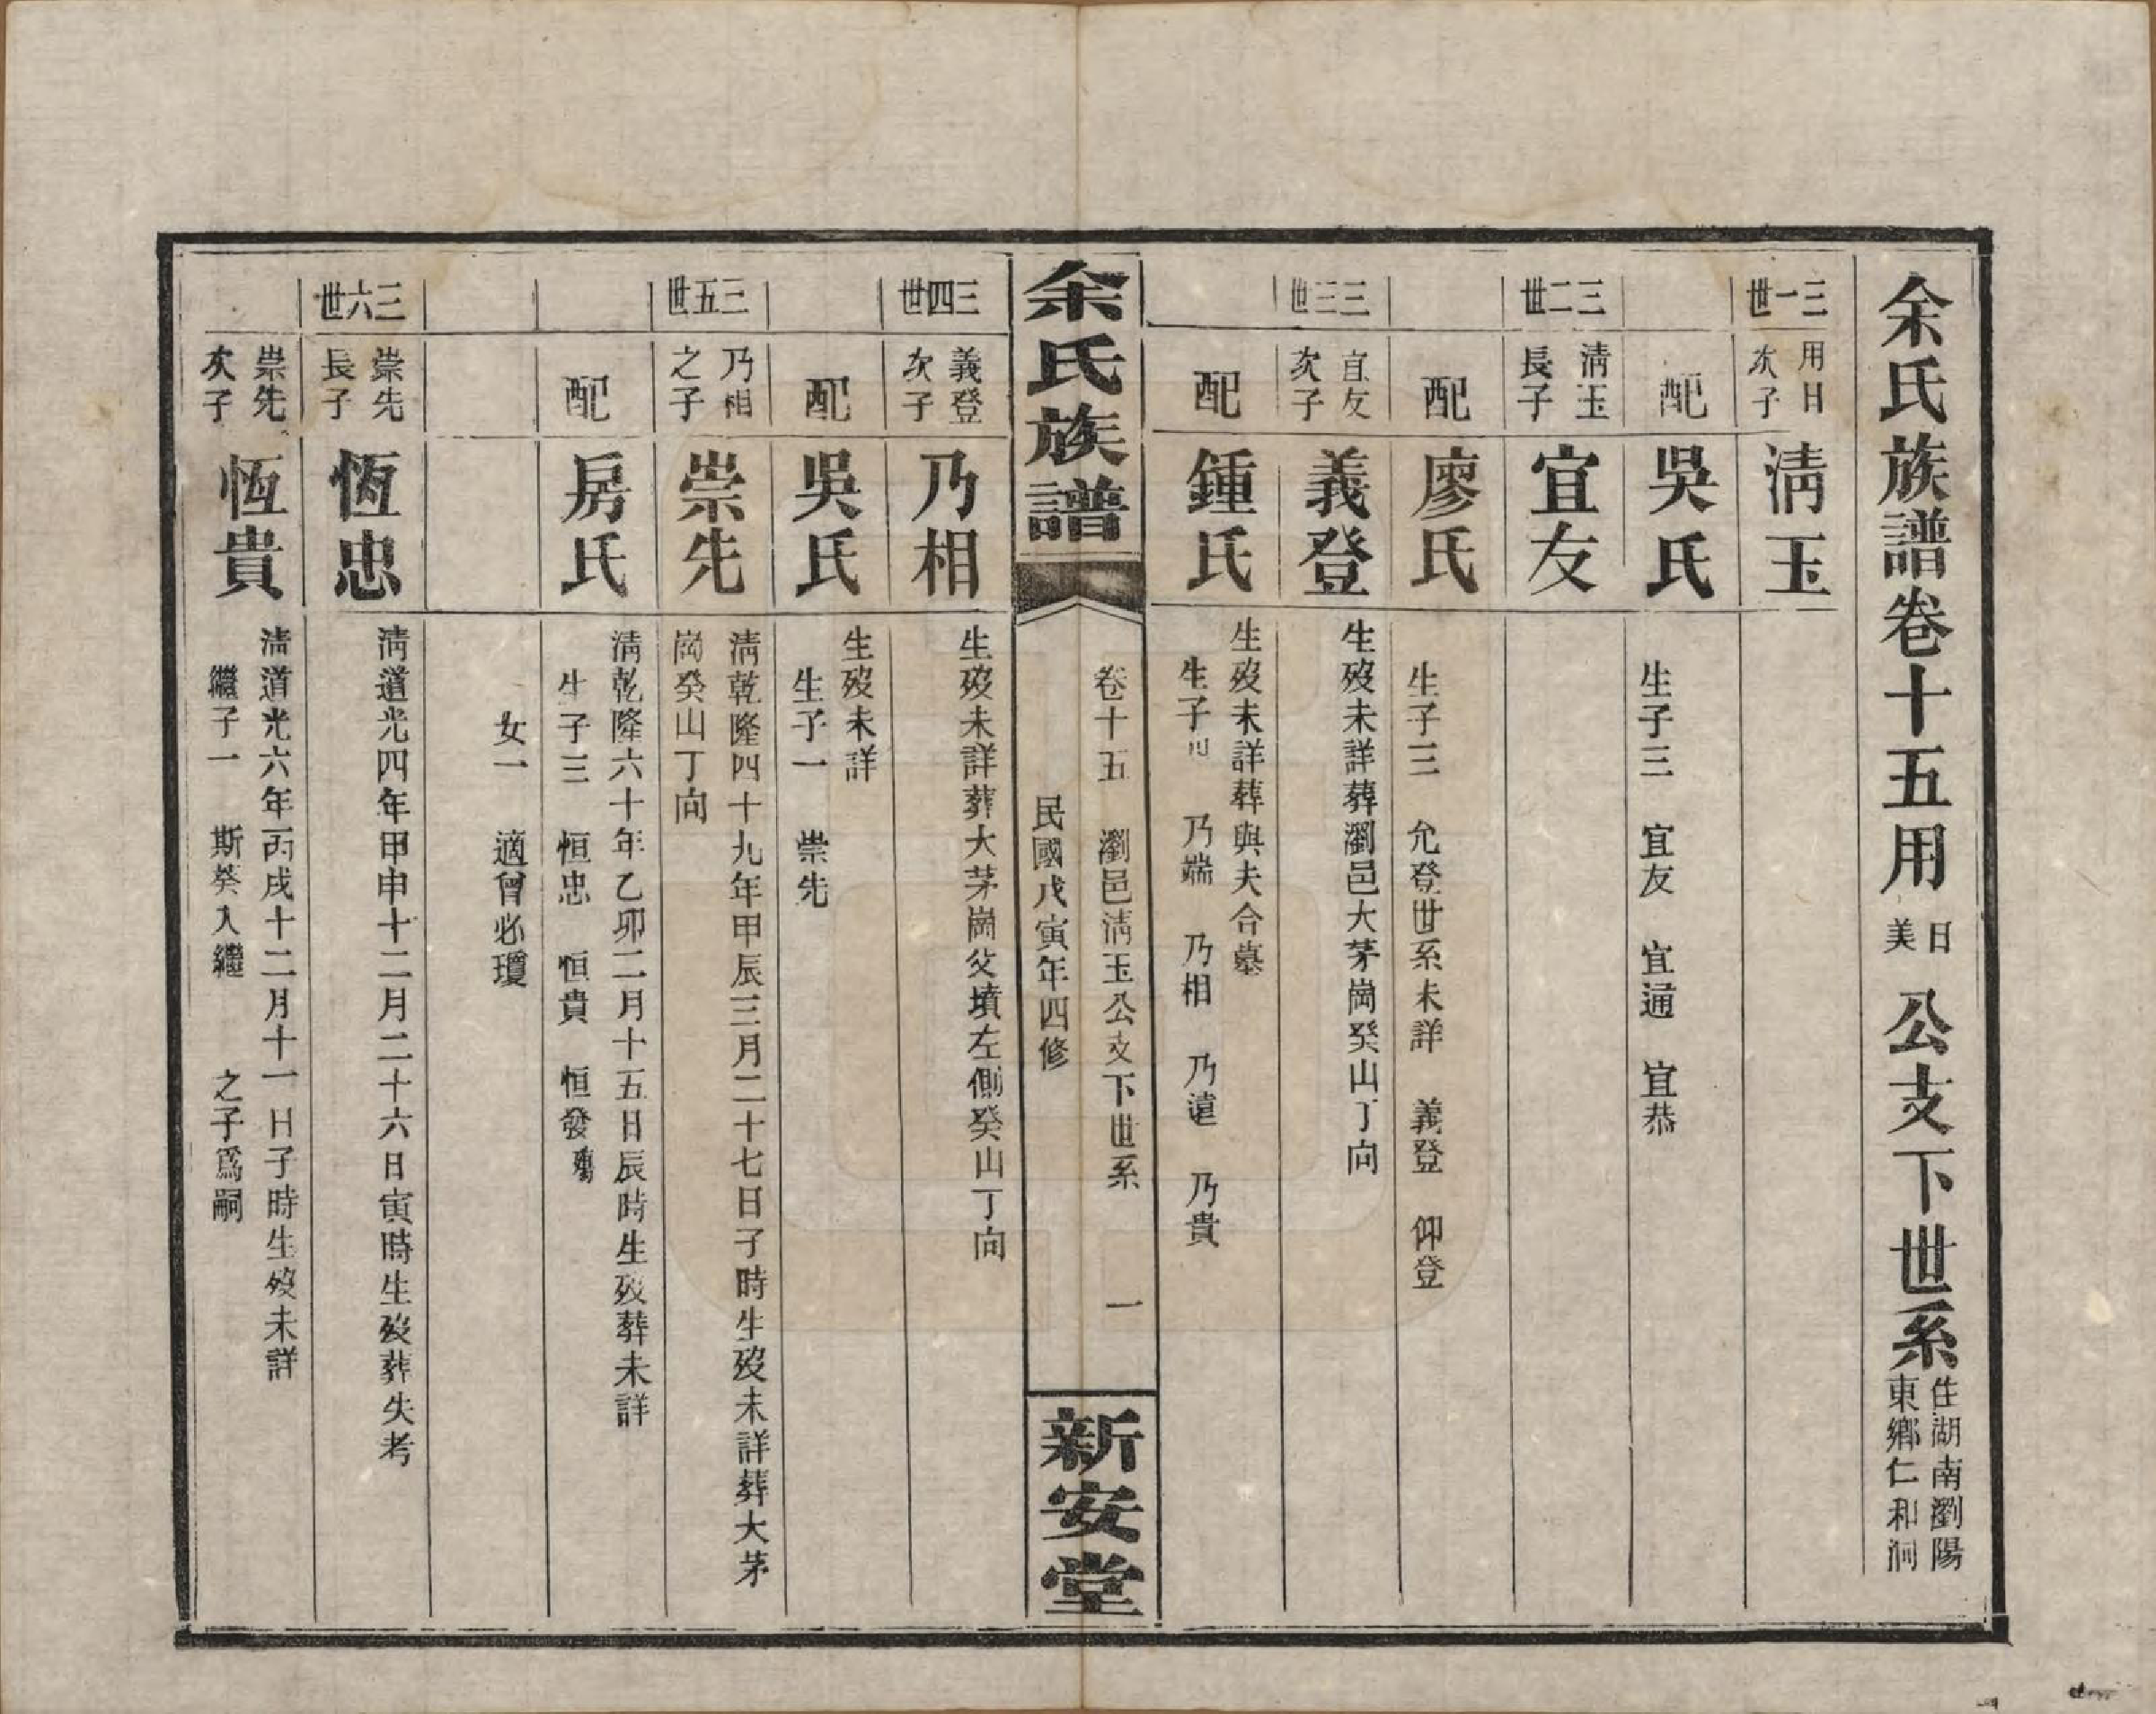 余氏族譜卷十五用日美公支下世系住湖南瀏陽東鄉仁和洞
三一世
用日次子
淸玉
配
吳氏
生子三 宜友 宜通 宜恭
三二世
淸玉長子
宜友
配
廖氏
生子三 允登世系未詳 義登 仰登
三三世
宜友次子
義登
生歿未詳葬瀏邑大茅崗癸山丁向
配
鍾氏
生歿未詳葬與夫合墓
生子四 乃端 乃相 乃遠 乃貴
余氏族譜
卷十五 瀏邑淸玉公支下世系 一
民國戊寅年四修
新安堂
三四世
義登次子
乃相
生歿未詳葬大茅崗父墳左側癸山丁向
配
吳氏
生歿未詳
生子一 崇先
三五世
乃相之子
崇先
淸乾隆四十九年甲辰三月二十七日子時生歿未詳葬大茅
崗癸山丁向
配
房氏
淸乾隆六十年乙卯二月十五日辰時生歿葬未詳
生子三 恒忠 恒貴 恒發殤
女一 適曾必瓊
三六世
崇先長子
恆忠
淸道光四年甲申十二月二十六日寅時生歿葬失考
崇先次子
恆貴
淸道光六年丙戌十二月十一日子時生歿未詳
繼子一 斯葵入繼 之子爲嗣